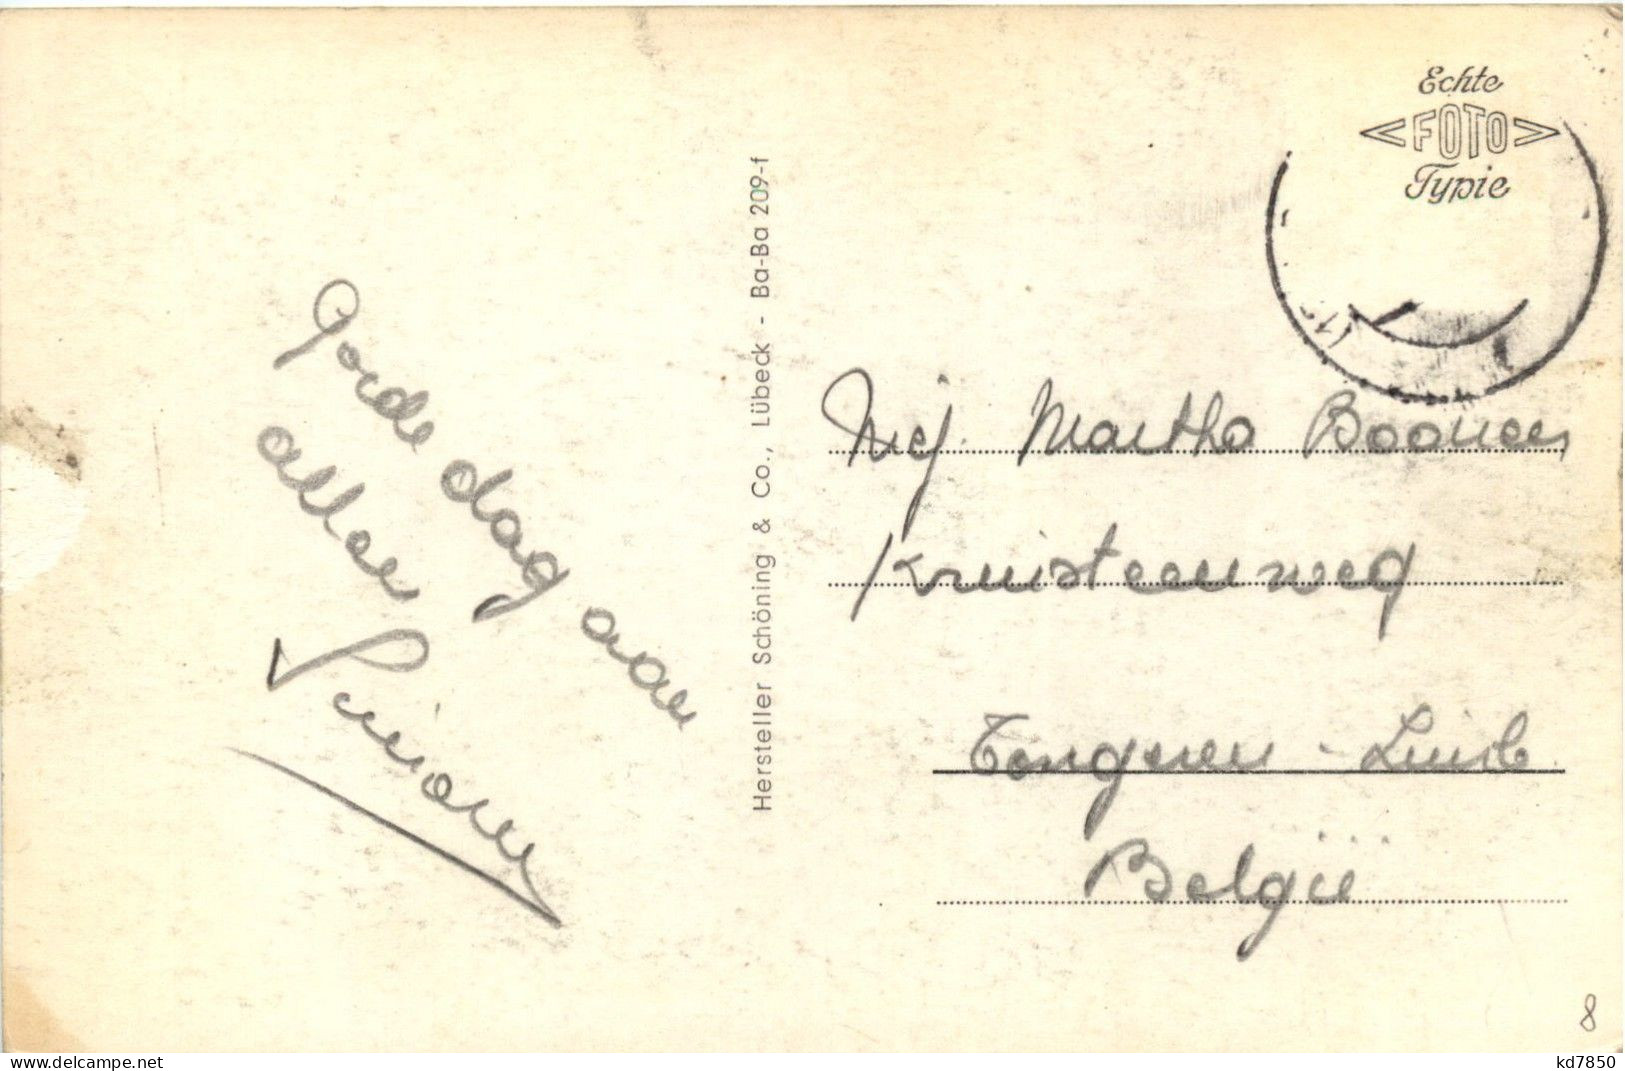 Goede dag aan
allen
Simonne
Hersteller Schöning & Co., Lübeck - Ba-Ba 209-f
Echte
<FOTO>
Typie
Mej. Martha
Kruisteenweg
Tongeren - Limb
België
8
www.delcampe.net
kd7850